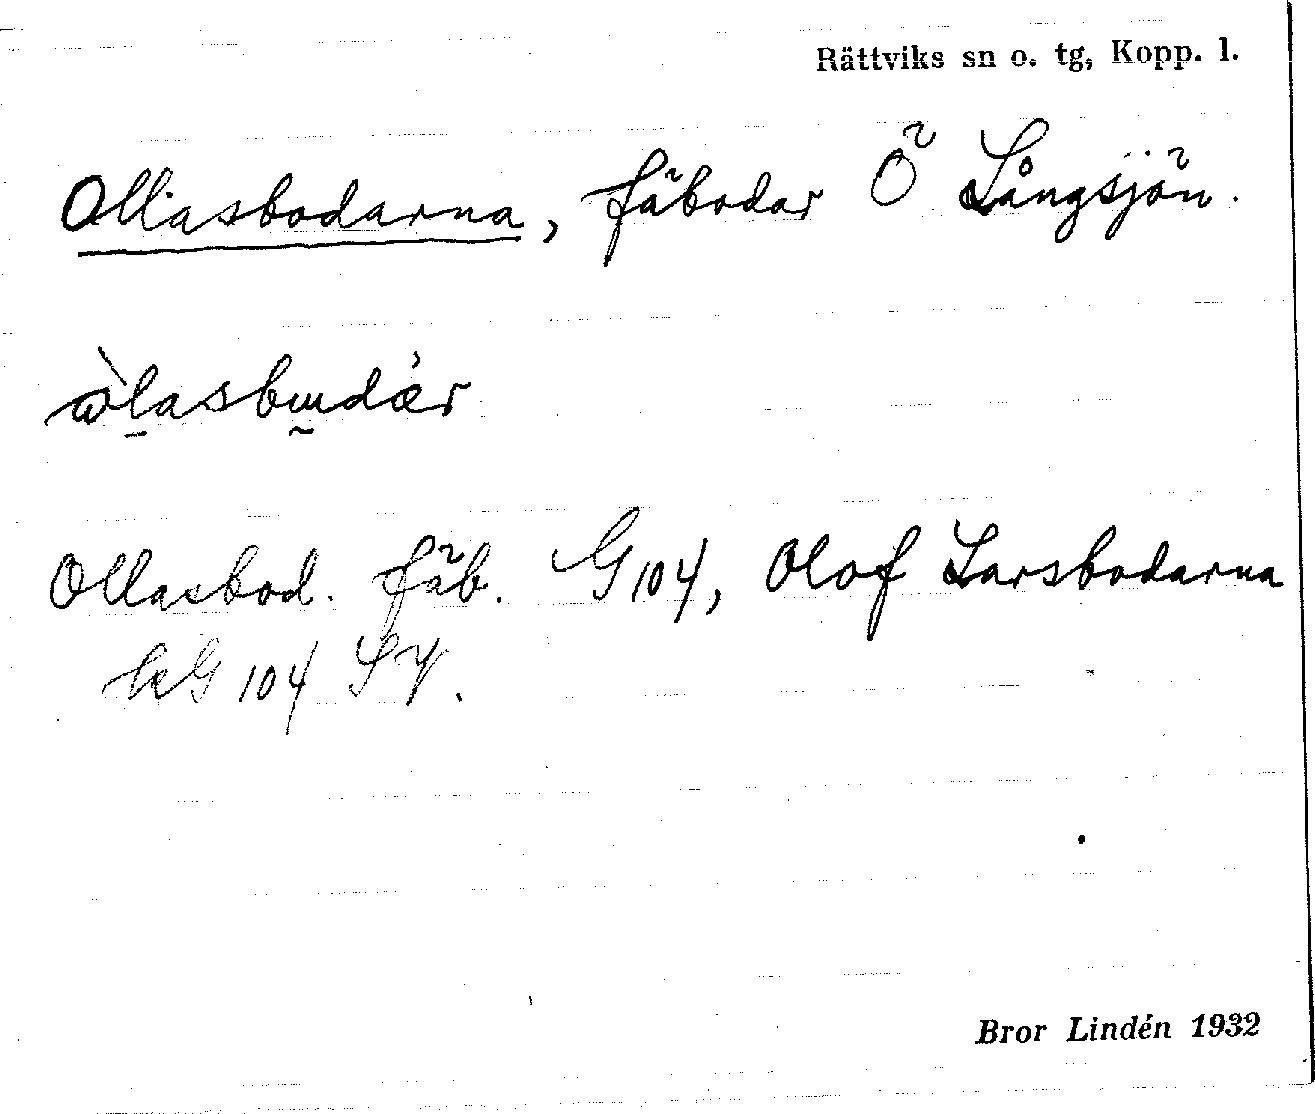 Rättviks sn o. tg, Kopp. l.
Ollasbodarna, fäbodar Ö Långsjön.
Ollasbod. fäb. G 104, Olof Larsbodarna
kG 104 SV.
Bror Lindén 1932